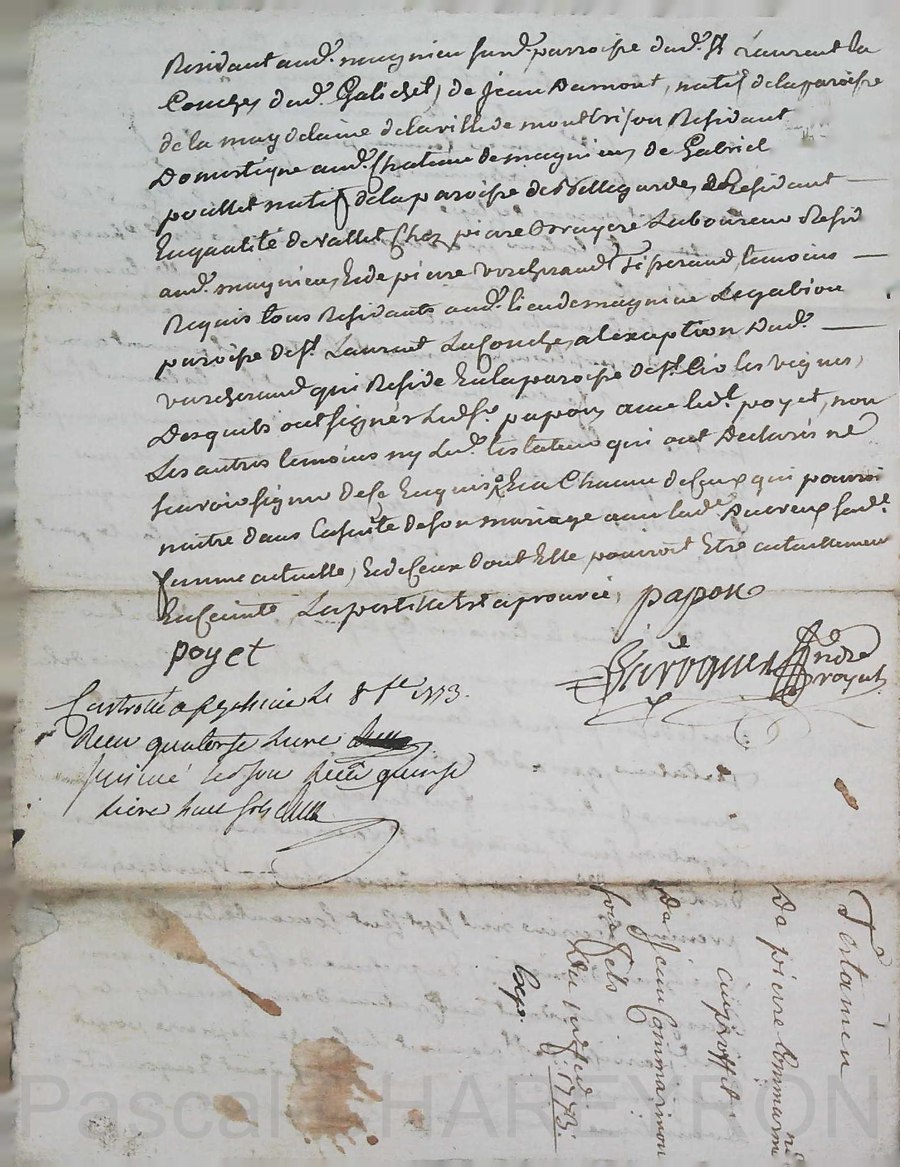 Residant aud. magnieu susd. parroisse dud. St Laurent la
Conche, dud. Galichet, de jean Damont, natif de la paroisse
de la magdelaine de la ville de montbrison Residant
Domestique aud. chateau de magnieu, de Gabriel
pouillet natif de la paroisse de Bellegarde, & Residant
En qualité de vallet Chez pierre Bruyere Laboureur Resid
aud. magnieu, & de pierre vercherand temoins
Requis tous Residants aud. lieu de magnieu
paroisse de St. Laurent La Conche, a l'exeption dud.
vercherand qui Reside En la paroisse de St. les vignes,
Desquels ont signés Led. Sr. papon avec led. poyet, non
Les autres temoins ny Led. testateur qui ont Declarés ne
scavoir signer de ce Enquis & En Chacun de Ceux qui pourroit
naitre dans la suitte de son mariage avec lad.
femme actuelle, & de Ceux dont Elle pourroit Etre actuellement
Enceinte, La postille Est aprouvée, papon
poyet
Siroquet André
royal
Controllé a le 8 1773.
Receu quatorse livre
Insinué led jour Receu quinse
livre huit sols
Testament
De pierre Commarmond
au proffit
De Jean Commarmond
son fils
Du 1773.
Exp.
Pascal CHAREYRON